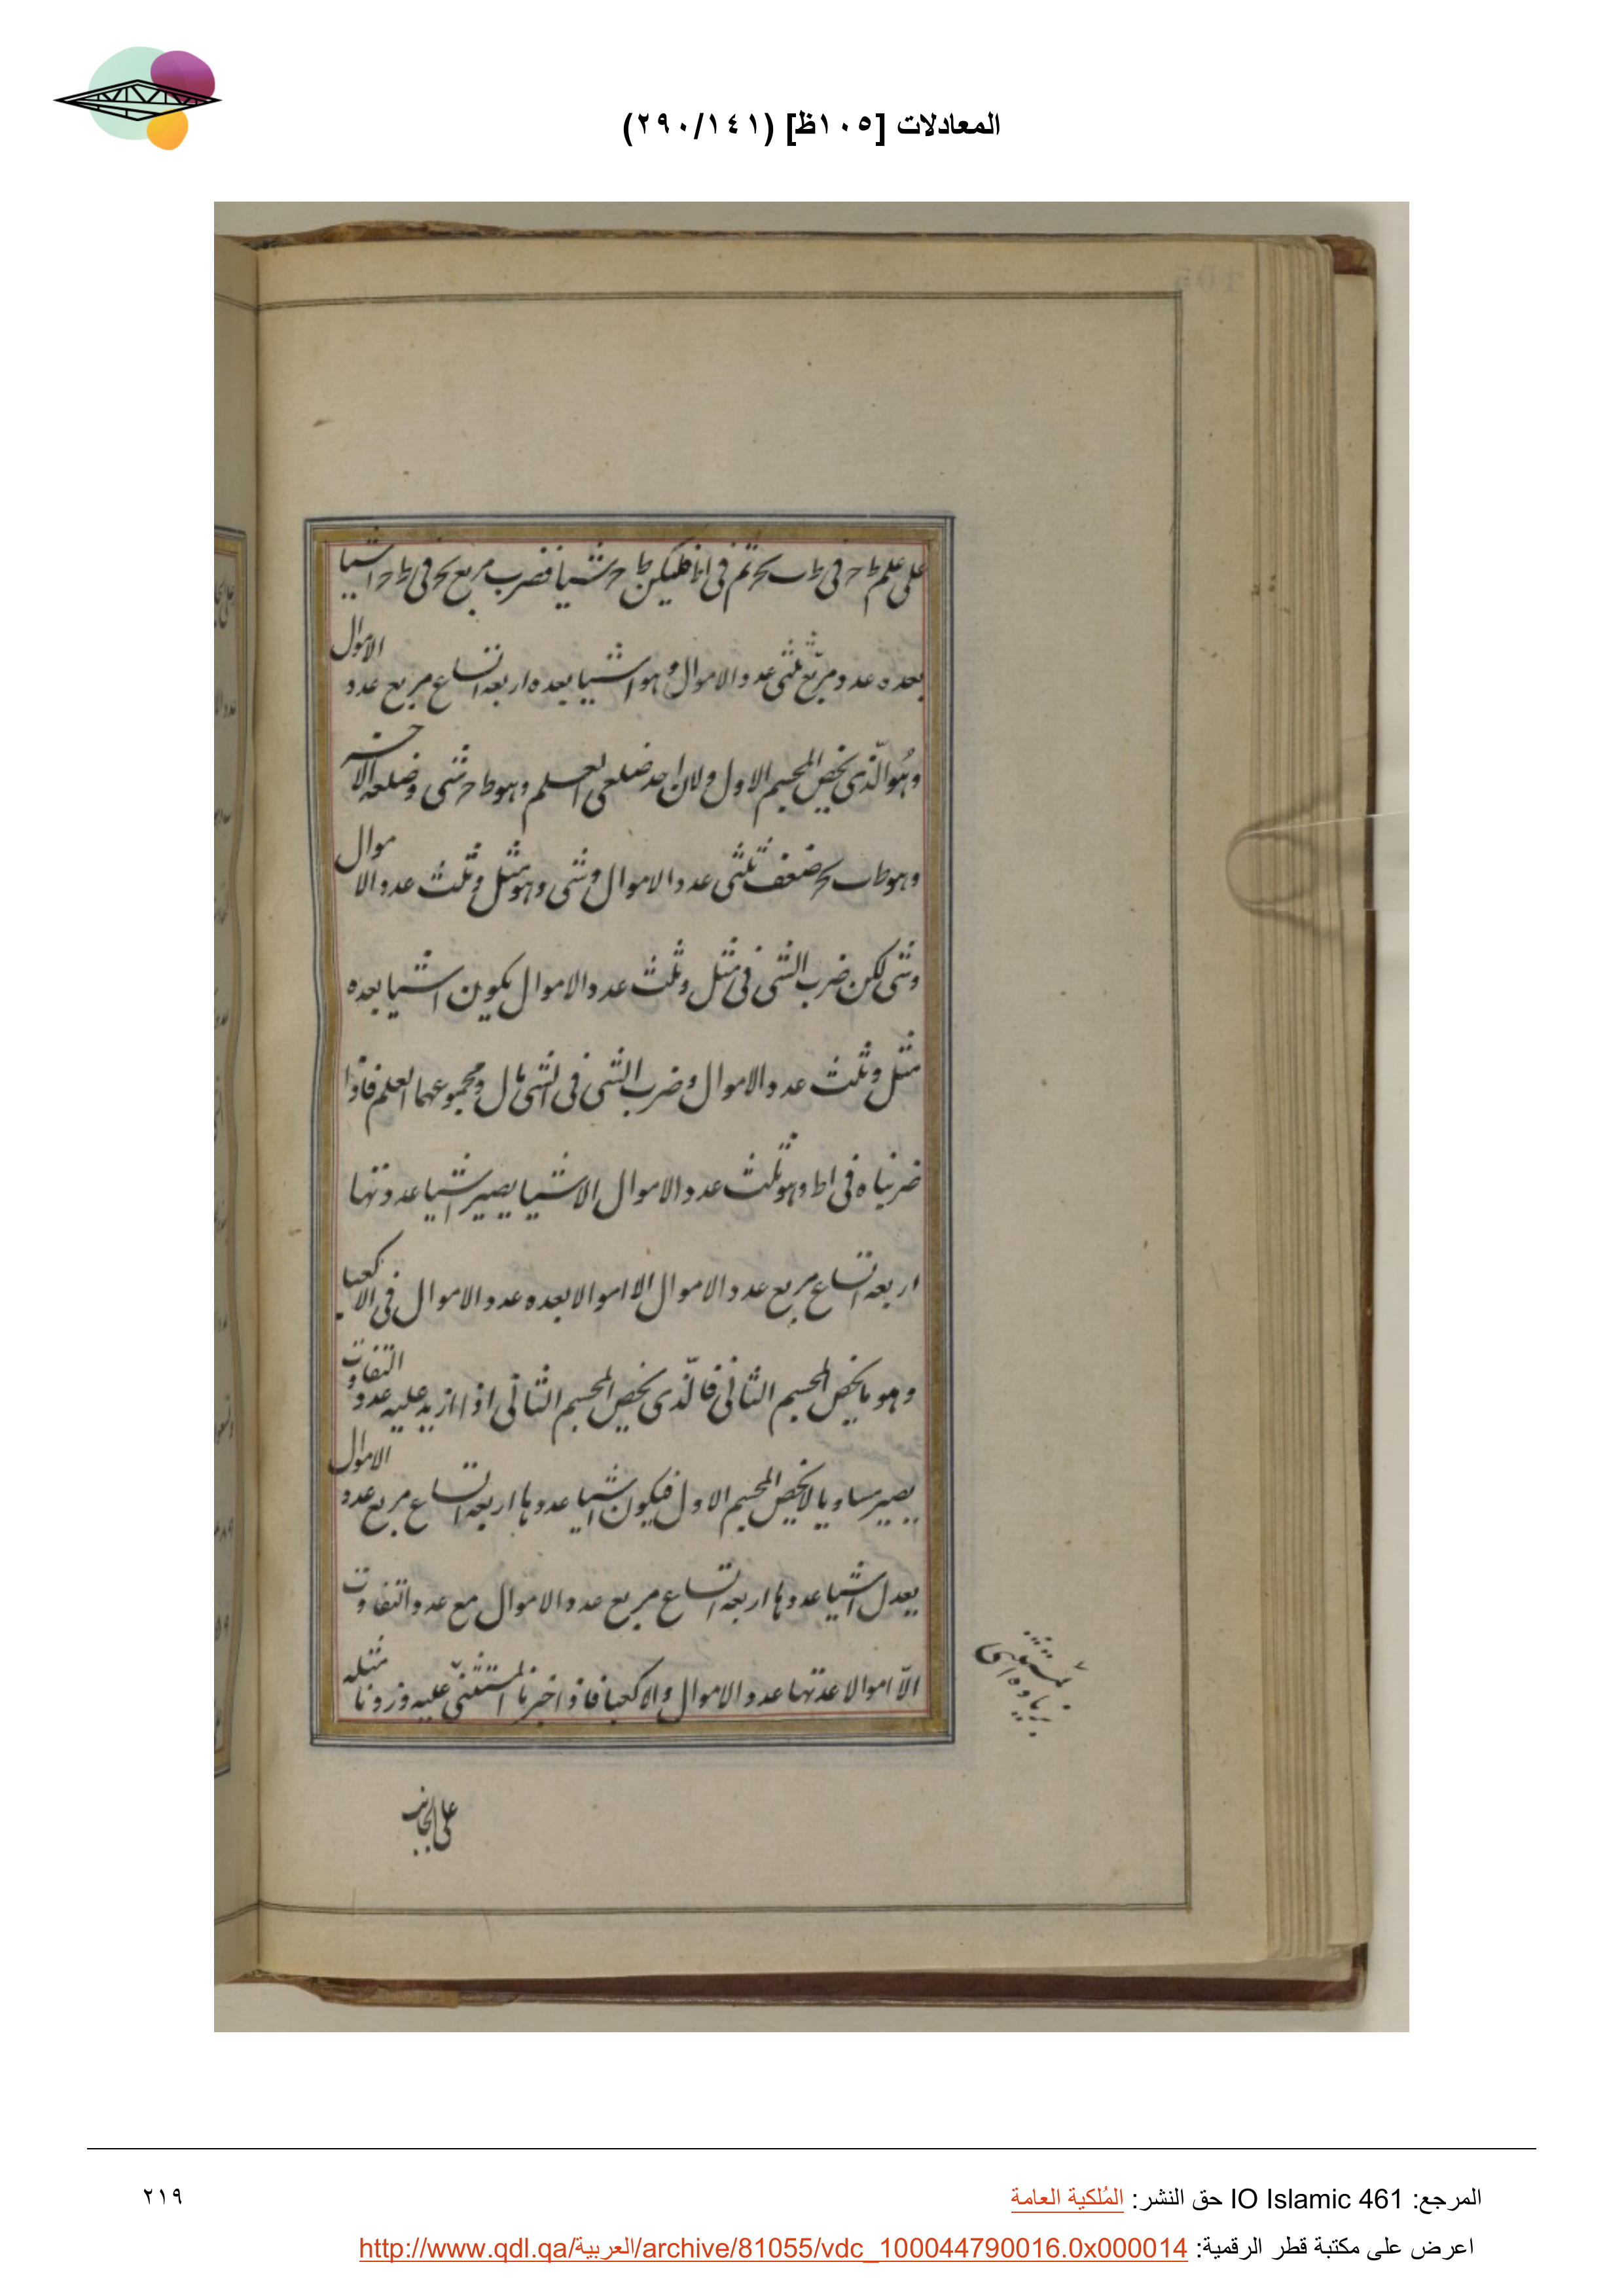 المعادلات [١٠٥ظ] (٢٩٠/١٤١)
على علم ط ح فى ط ب ك ح ثم فى ا ط فليكن ط ح شيا فضرب مربع ك ح فى ط ح اشيا
بعده عدد مربع ثلثى عدد الاموال وهو اشيا بعده اربعه اتساع مربع عدد الاموال
وهو الذى يخص المجسم الاول ولان احد ضلعى العلم وهو ط ح شى وضلعه الاخر
وهو ط ب ك ح ضعف ثلثى عدد الاموال وشى وهو مثل وثلث عدد الاموال
وشى لكن ضرب الشى فى مثل وثلث عدد الاموال يكون اشيا بعده
مثل وثلث عدد الاموال وضرب الشى فى الشى مال ومجموعهما العلم فاذا
ضربناه فى ا ط وهو ثلث عدد الاموال الا شيا يصير اشيا عدتها
اربعه اتساع مربع عدد الاموال الا اموالا بعده عدد الاموال فى الا كعبا
وهو ما يخص المجسم الثانى فالذى يخص المجسم الثانى اذا ازيد عليه عدد التفاوت
يصير مساويا لا يخص المجسم الاول فيكون اشيا عددها اربعه اتساع مربع عدد الاموال
يعدل اشيا عددها اربعه اتساع مربع عدد الاموال مع عدد التفاوت
الا اموالا عدتها عدد الاموال والا كعبا فاذا اخبرنا المستثنى عليه وزدنا مثله
المستثنى
زياده
على الجانب
المرجع: IO Islamic 461 حق النشر: المُلكية العامة
٢١٩
اعرض على مكتبة قطر الرقمية: http://www.qdl.qa/العربية/archive/81055/vdc_100044790016.0x000014